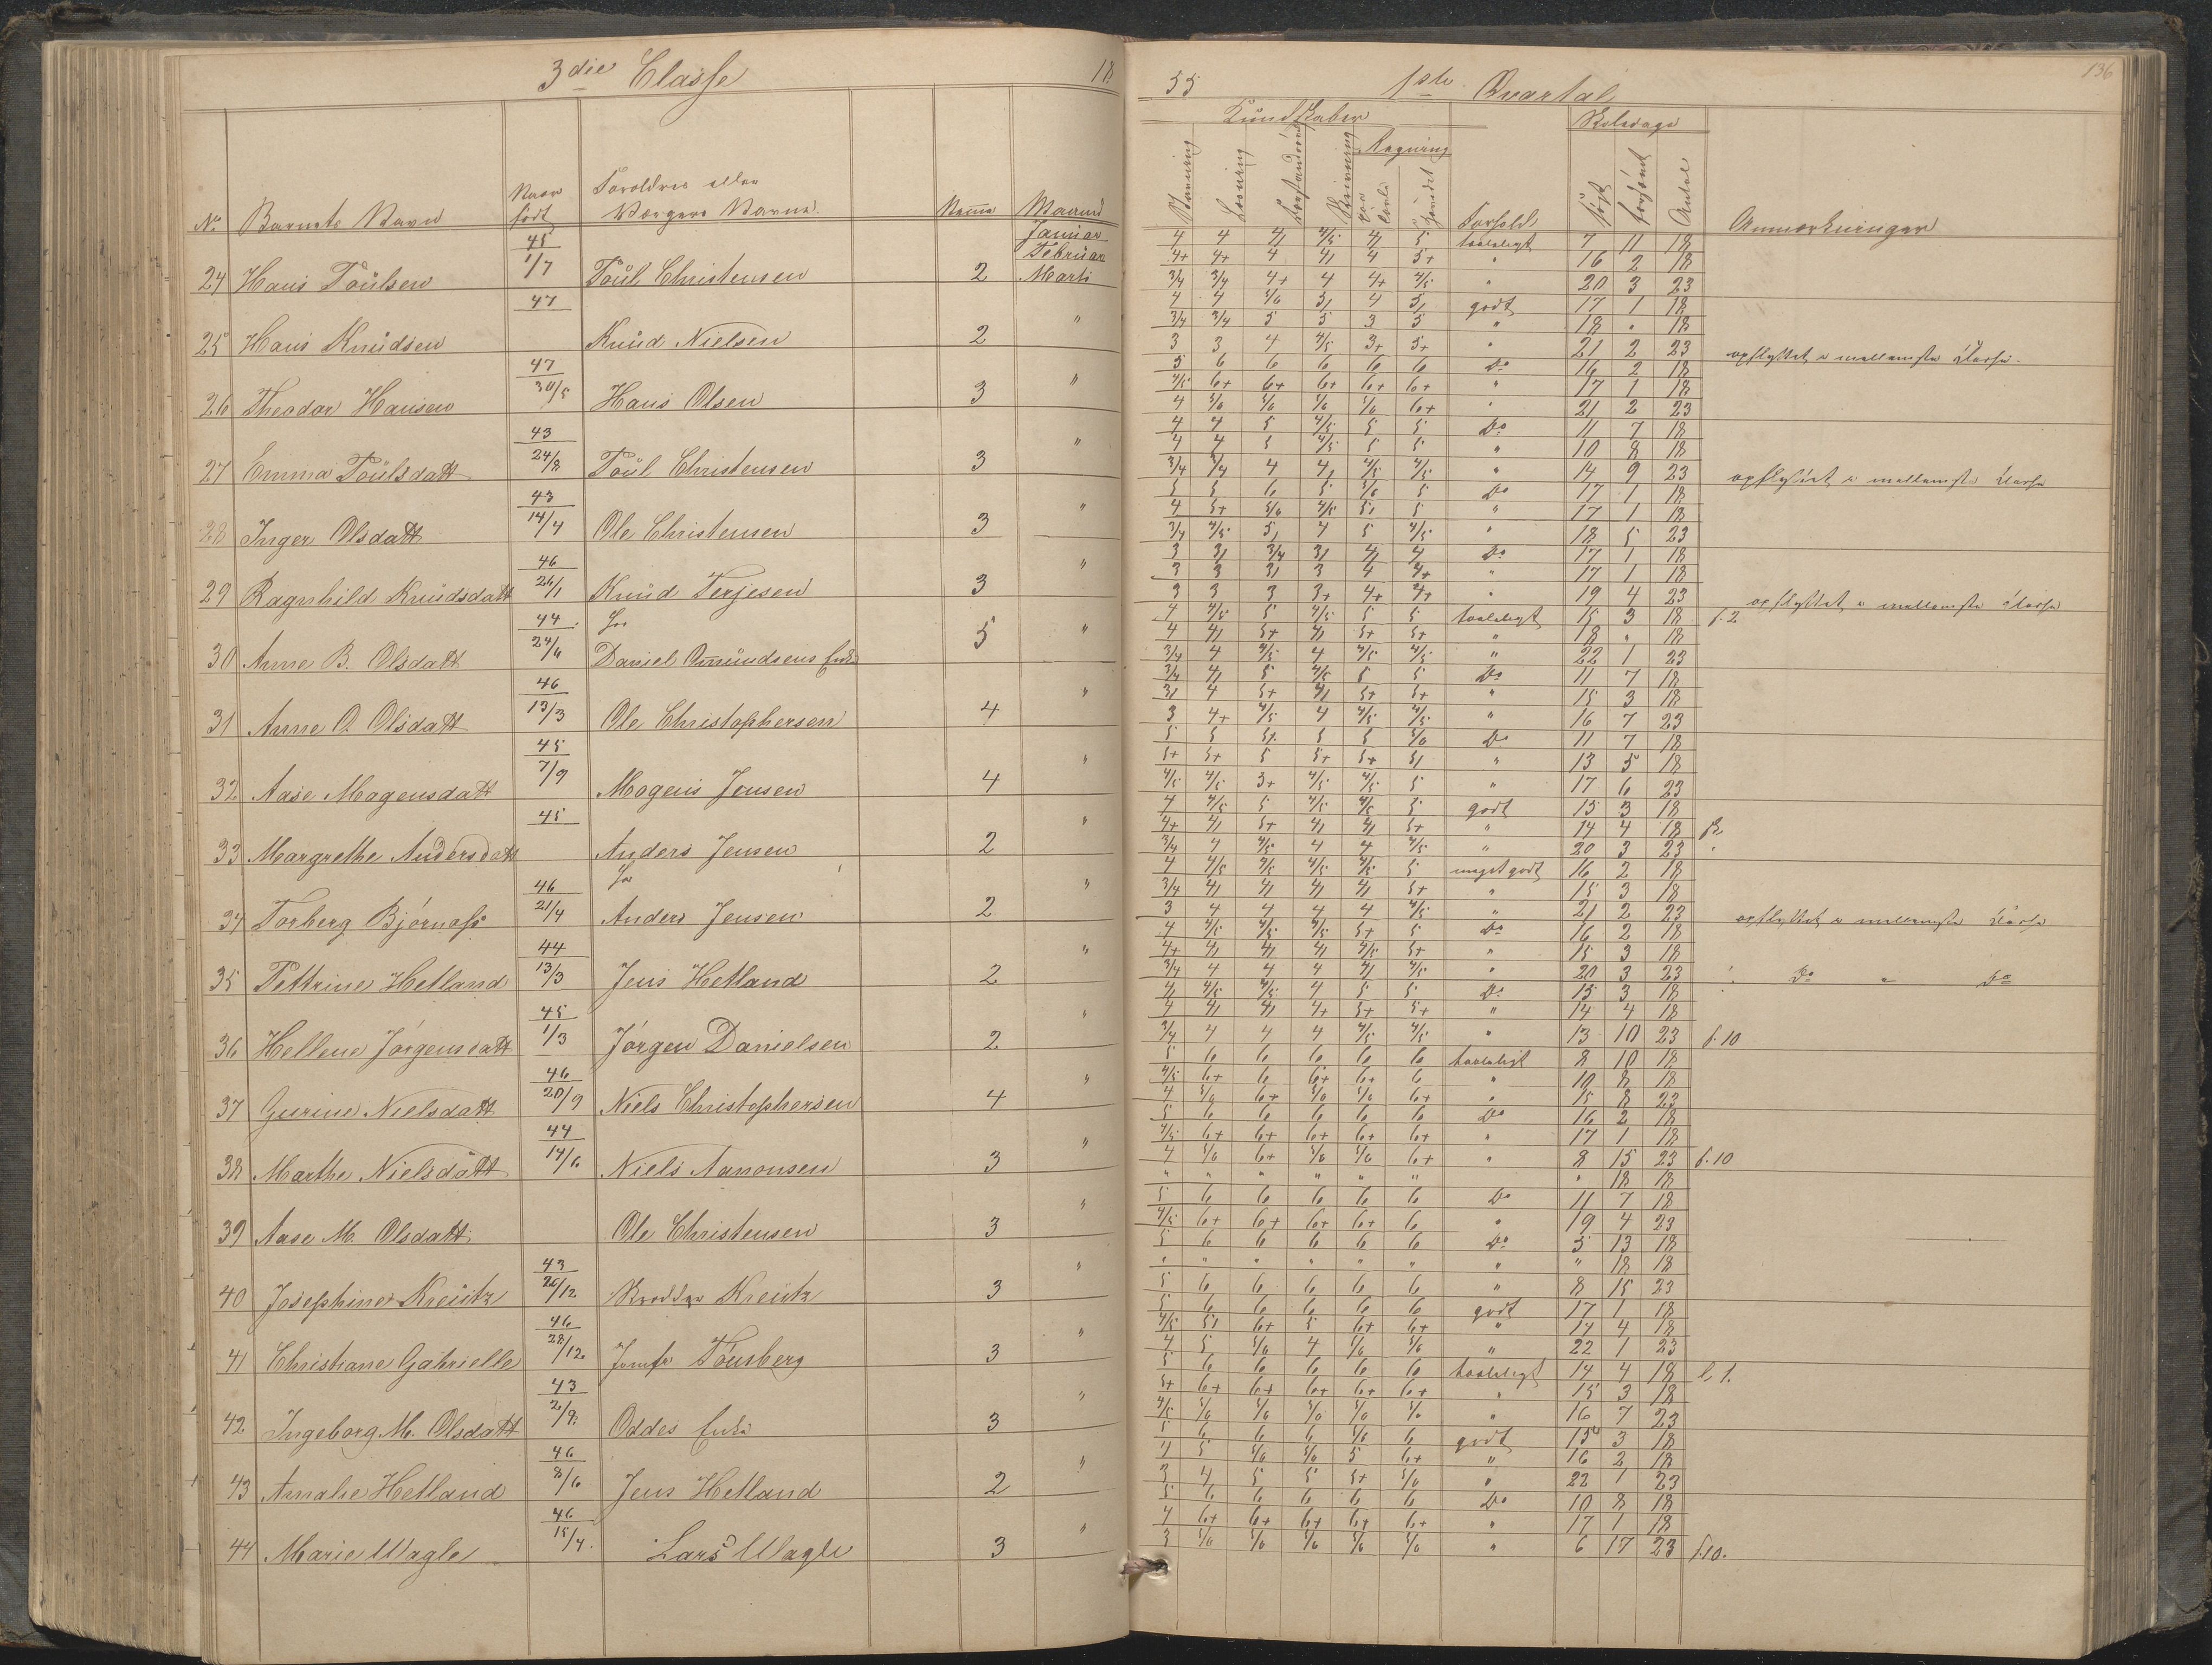 3die Classe 18
55 1ste Qvartal 136
Kundskaber Skoledage
Regning
No Barnets Navn Naar født Forældres eller Værgers Navne. Maaned Forhold Søgt forsømt Antal Anmærkninger
Januar 4 4 5 taaleligt 7 11 18
45 Februar 4+ 4+ 4 4 5+ " 16 2 18
24 Hans Poülsen 1/7 Poül Christensen 2 Marti 3/4 3/4 4+ 4 4+ 4/5 " 20 3 23
47 4 4 5/6 4 godt 17 1 18
3/4 3/4 5 5 3 5 " 18 " 18
25 Hans Knüdsen Knüd Nielsen 2 " 3 3 4 4/5 3+ 5+ " 21 2 23 opflyttet i mellemste Classe
47 5 6 6 6 6 6 Do 16 2 18
4/5 6+ 6+ 6+ 6+ 6+ " 17 1 18
26 Theodor Hansen 30/5 Hans Olsen 3 " 4 5/6 5/6 5/6 5/6 6+ " 21 2 23
43 4 4 5 4/5 5 5 Do 11 7 18
4 4 5 4/5 5 5 " 10 8 18
27 Emma Poülsdatt 24/8 Poül Christensen 3 " 3/4 3/4 4 4/5 4/5 " 14 9 23 opflyttet i mellemste Classe
43 5 5 6 5 5/6 5 Do 17 1 18
4 5+ 5/6 4/5 5 " 17 1 18
28 Inger Olsdatt 14/4 Ole Christensen 3 " 3/4 4/5 4 5 4/5 " 18 5 23
46 3 3/4 4 Do 17 1 18
3 3 3 4 4+ " 17 1 18
29 Ragnhild Knüdsdatt 26/1 Knüd Terjesen 3 " 3 3 3 3+ 4+ 4+ " 19 4 23 opflyttet i mellemste Classe
44 4 4/5 5 4/5 5 5 taaleligt 15 3 18 f. 2
4 5+ 5+ 5+ " 18 " 18
30 Anne B. Olsdatt 24/6 Daniel Omündsens Enke 5 " 3/4 4 4/5 4 4/5 4/5 " 22 1 23
46 3/4 5 4/5 5 5 Do 11 7 18
4 5+ 5+ 5+ " 15 3 18
31 Anne O. Olsdatt 13/3 Ole Christophersen 4 " 3 4+ 4/5 4 4/5 4/5 " 16 7 23
45 5 5 5 5 5/6 Do 11 7 18
5+ 5+ 5 5+ 5+ " 13 5 18
32 Aase Mogensdatt 7/9 Mogens Jensen 4 " 4/5 4/5 3+ 4/5 4/5 5 " 17 6 23
45 4 4/5 5 4/5 4/5 5 godt 15 3 18
4+ 5+ 5+ " 14 4 18
33 Margrethe Andersdatt Anders Jensen 2 " 3/4 4 4/5 4 4 4/5 " 20 3 23
46 4 4/5 4/5 4/5 4/5 5 meget godt 16 2 18
3/4 5+ " 15 3 18
34 Torberg Bjørnoss 21/4 Anders Jensen 2 " 3 4 4 4 4 4/5 " 21 2 23 opflyttet i mellemste Classe
44 4 4/5 4/5 4/5 5+ 5 Do 16 2 18
4+ 4/5 5+ " 15 3 18
35 Pettrine Hetland 13/3 Jens Hetland 2 " 3/4 4 4 4 4/5 " 20 3 23 Do " Do
45 4/5 4/5 4 5 5 Do 15 3 18
4 4+ 5+ 5+ " 14 4 18
36 Hellene Jørgensdatt 1/3 Jørgen Danielsen 2 " 3/4 4 4 4 4/5 4/5 " 13 10 23 f. 10
46 5 6 6 6 6 6 taaleligt 8 10 18
4/5 6+ 6 6+ 6+ 6 " 10 8 18
37 Gurine Nielsdatt 20/9 Niels Christophersen 4 " 4 5/6 6+ 5/6 5/6 6+ " 15 8 23
44 5 6 6 6 6 6 Do 16 2 18
4/5 6+ 6+ 6+ 6+ 6+ " 17 1 18
38 Marthe Nielsdatt 14/6 Niels Aanonsen 3 " 4 5/6 6+ 5/6 5/6 6+ " 8 15 23 f. 10
" " " " " " " 18 18
5 6 6 6 6 6 Do 11 7 18
39 Aase M. Olsdatt Ole Christensen 3 " 4/5 6+ 6+ 6+ 6+ 6 " 19 4 23
43 5 6 6 6 6 6 Do 5 13 18
" " " " " " " " 18 18
40 Josephine Kreütz 26/12 Kreütz 3 " 5 6 6 6 6 6 " 8 15 23
46 5 6 6 6 6 6 godt 17 1 18
4/5 6+ 5 6+ 6+ " 14 4 18
41 Christiane Gabrielle 28/12 Jomfr Tønsberg 3 " 4 5 5/6 4 5/6 5/6 " 22 1 23
43 5 6 6 6 6 6 taaleligt 14 4 18
5+ 6+ 6+ 6+ 6+ 6+ " 15 3 18
42 Ingeborg M. Olsdatt 2/8 Oddes Enke 3 " 4/5 5/6 5/6 5/6 5/6 5/6 " 16 7 23
46 5 6 6 6 5/6 6 godt 15 3 18
4 5 5/6 5/6 5 6+ " 16 2 18
43 Amalie Hetland 8/6 Jens Hetland 2 " 3 4 5 5 5+ 5/6 " 22 1 23
46 5 6 6 6 6 6 Do 10 8 18
4 6+ 6+ 6+ 6+ 6+ " 17 1 18
44 Marie Wagle 15/4 Lars Wagle 3 " 3 5/6 5/6 5/6 5/6 5/6 " 6 17 23 f. 10.